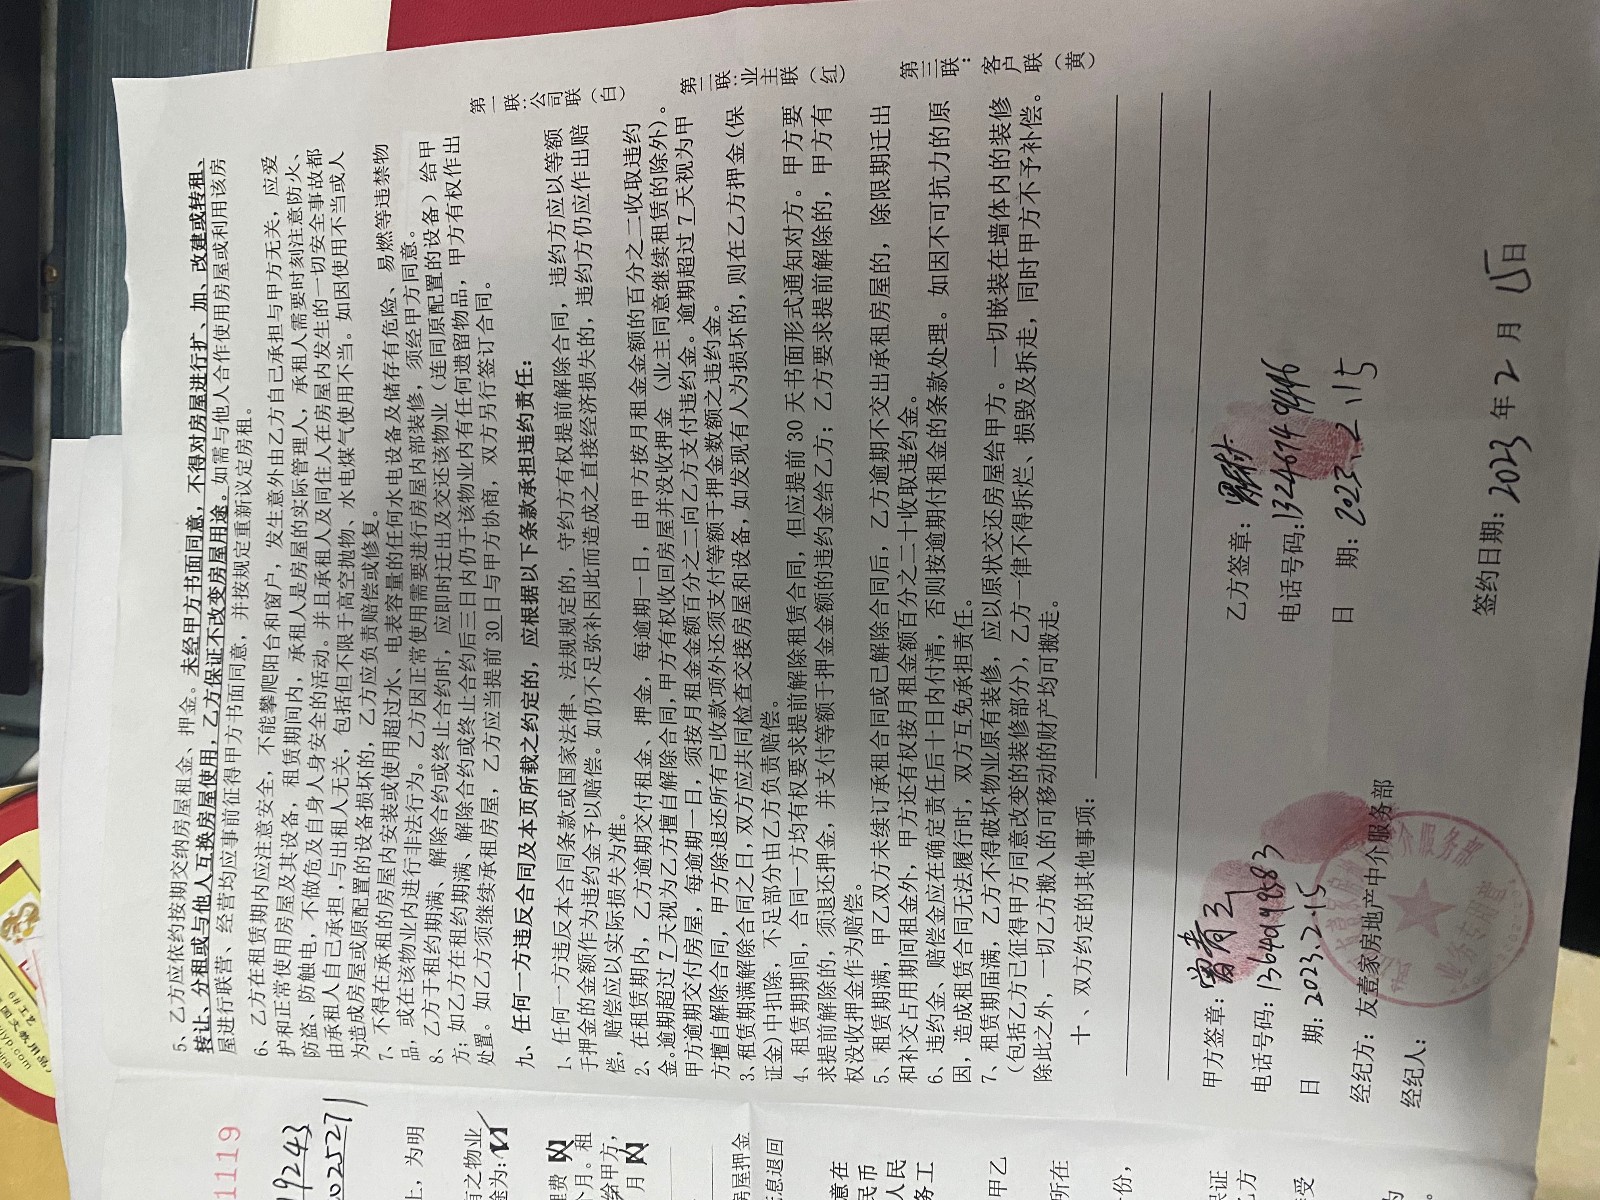 5、乙方应依约按期交纳房屋租金、押金。未经甲方书面同意，不得对房屋进行扩、加、改建或转租、
转让、分租或与他人互换房屋使用，乙方保证不改变房屋用途。如需与他人合作使用房屋或利用该房
屋进行联营、经营均应事前征得甲方书面同意，并按规定重新议定房租。
6、乙方在租赁期内应注意安全，不能攀爬阳台和窗户，发生意外由乙方自己承担与甲方无关，应爱
护和正常使用房屋及其设备，租赁期间内，承租人是房屋的实际管理人，承租人需要时刻注意防火、
防盗、防触电，不做危及自身人身安全的活动。并且承租人及同住人在房屋内发生的一切安全事故都
由承租人自己承担，与出租人无关，包括但不限于高空抛物、水电煤气使用不当。如因使用不当或人
为造成房屋或原配置的设备损坏的，乙方应负责赔偿或修复。
7、不得在承租的房屋内安装或使用超过水、电表容量的任何水电设备及储存有危险、易燃等违禁物
品，或在该物业内进行非法行为。乙方因正常使用需要进行房屋内部装修，须经甲方同意。
8、乙方于租约期满、解除合约或终止合约时，应即时迁出及交还该物业（连同原配置的设备）给甲
方；如乙方在租约期满、解除合约或终止合约后三日内仍于该物业内有任何遗留物品，甲方有权作出
处置。如乙方须继续承租房屋，乙方应当提前 30 日与甲方协商，双方另行签订合同。
九、任何一方违反合同及本页所载之约定的，应根据以下条款承担违约责任：
1、任何一方违反本合同条款或国家法律、法规规定的，守约方有权提前解除合同，违约方应以等额
于押金的金额作为违约金予以赔偿。如仍不足弥补因此而造成之直接经济损失的，违约方仍应作出赔
偿，赔偿应以实际损失为准。
2、在租赁期内，乙方逾期交付租金、押金，每逾期一日，由甲方按月租金金额的百分之二收取违约
金。逾期超过 7 天视为乙方擅自解除合同，甲方有权收回房屋并没收押金（业主同意继续租赁的除外）。
甲方逾期交付房屋，每逾期一日，须按月租金金额百分之二向乙方支付违约金。逾期超过 7 天视为甲
方擅自解除合同，甲方除退还所有已收款项外还须支付等额于押金数额之违约金。
3、租赁期满解除合同之日，双方应共同检查交接房屋和设备，如发现有人为损坏的，则在乙方押金（保
证金）中扣除，不足部分由乙方负责赔偿。
4、租赁期期间，合同一方均有权要求提前解除租赁合同，但应提前 30 天书面形式通知对方。甲方要
求提前解除的，须退还押金，并支付等额于押金金额的违约金给乙方；乙方要求提前解除的，甲方有
权没收押金作为赔偿。
5、租赁期满，甲乙双方未续订承租合同或已解除合同后，乙方逾期不交出承租房屋的，除限期迁出
和补交占用期间租金外，甲方还有权按月租金额百分之二十收取违约金。
6、违约金、赔偿金应在确定责任后十日内付清，否则按逾期付租金的条款处理。如因不可抗力的原
因，造成租赁合同无法履行时，双方互免承担责任。
7、租赁期届满，乙方不得破坏物业原有装修，应以原状交还房屋给甲方。一切嵌装在墙体内的装修
（包括乙方已征得甲方同意改变的装修部分），乙方一律不得拆烂、损毁及拆走，同时甲方不予补偿。
除此之外，一切乙方搬入的可移动的财产均可搬走。
十、双方约定的其他事项：
第一联：公司联（白）
第二联：业主联（红）
第三联：客户联（黄）
甲方签章：
乙方签章：
电话号码：13640198583
电话号码：13246749446
日 期：2023.2.15
日 期：2023.2.15
经纪方：友壹家房地产中介服务部
经纪人：
签约日期：2023 年 2 月 15 日
中介服务部
业务专用章
1119
19243
025271
上，为明
有之物业
途为：
理费
个月。租
给甲方，
月
房屋押金
息退回
意在
民币
人民
务工
甲乙
所在
份，
保证
乙方
受
为